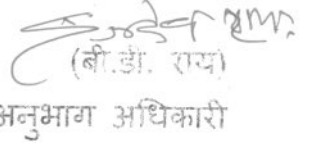 (बी.डी. राय)
अनुभाग अधिकारी